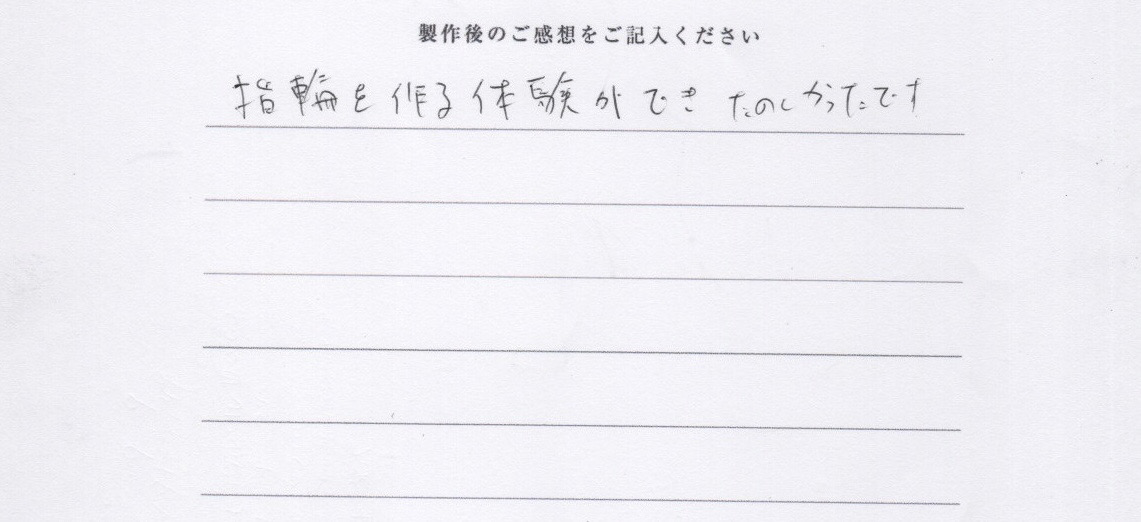 製作後のご感想をご記入ください
指輪を作る体験ができ たのしかったです